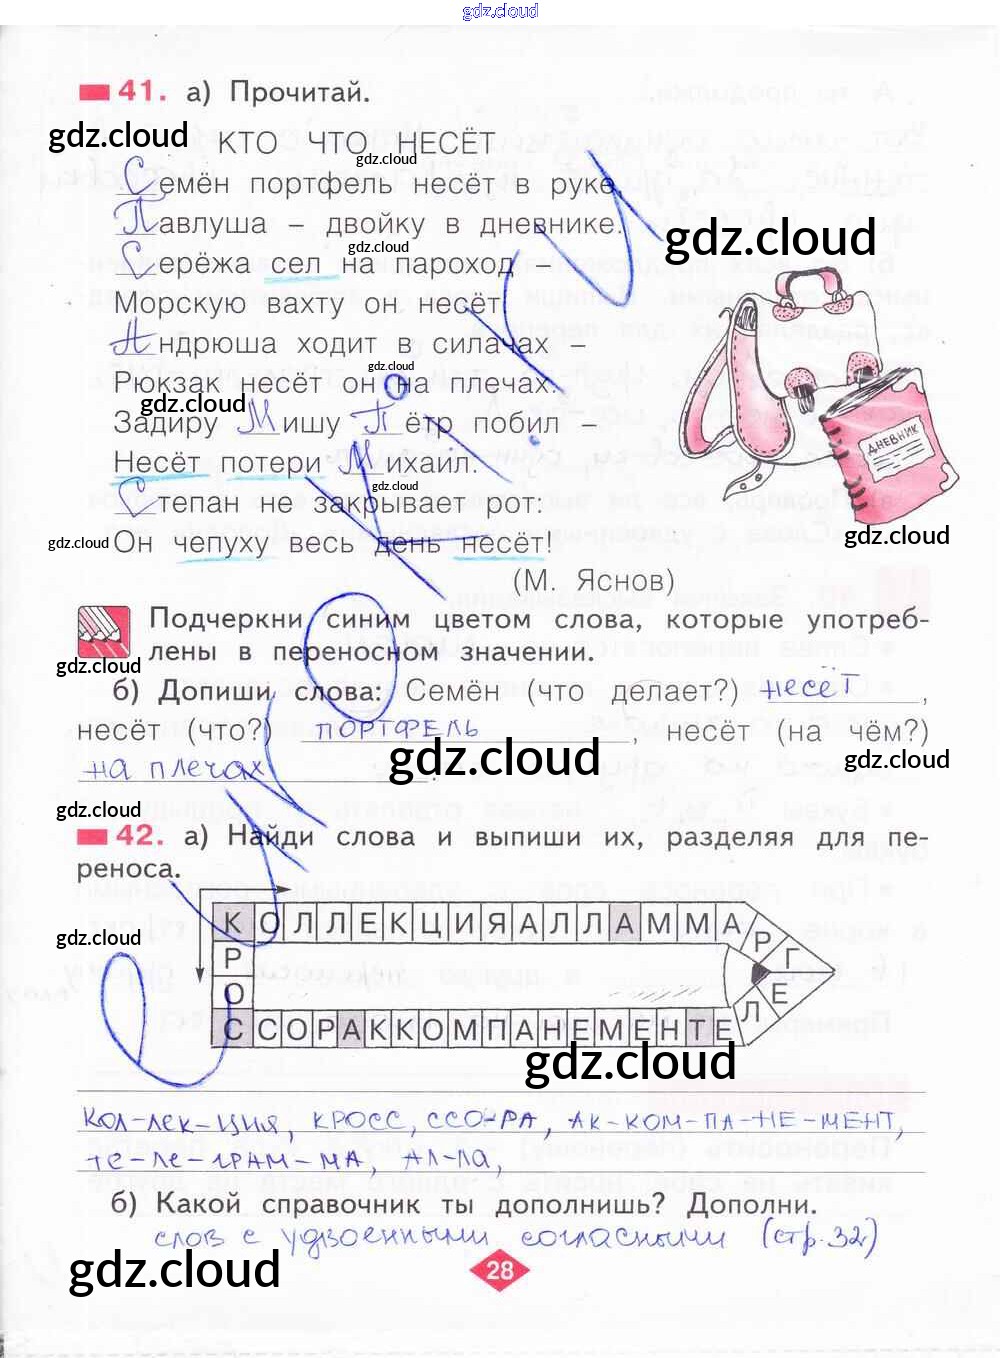 gdz.cloud
41. а) Прочитай.
gdz.cloud
КТО ЧТО НЕСЁТ
gdz.cloud
Семён портфель несёт в руке,
Павлуша – двойку в дневнике.
gdz.cloud
gdz.cloud
Серёжа сел на пароход –
Морскую вахту он несёт.
Андрюша ходит в силачах –
gdz.cloud
Рюкзак несёт он на плечах.
gdz.cloud
Задиру Мишу Пётр побил –
ДНЕВНИК
Несёт потери Михаил.
gdz.cloud
Степан не закрывает рот:
gdz.cloud
Он чепуху весь день несёт!
gdz.cloud
(М. Яснов)
Подчеркни синим цветом слова, которые употреб-
лены в переносном значении.
gdz.cloud
б) Допиши слова: Семён (что делает?) несёт,
несёт (что?) портфель, несёт (на чём?)
gdz.cloud
gdz.cloud
на плечах.
gdz.cloud
42. а) Найди слова и выпиши их, разделяя для пе-
реноса.
КОЛЛЕКЦИЯАЛЛАММАРГЕЛ
gdz.cloud
Р
О
gdz.cloud
ССОРАККОМПАНЕМЕНТЕ
gdz.cloud
кол-лек-ция, кросс, ссо-ра, ак-ком-па-не-мент,
те-ле-грам-ма, ал-ла,
б) Какой справочник ты дополнишь? Дополни.
слов с удвоенными согласными (стр. 32)
gdz.cloud
28
gdz.cloud